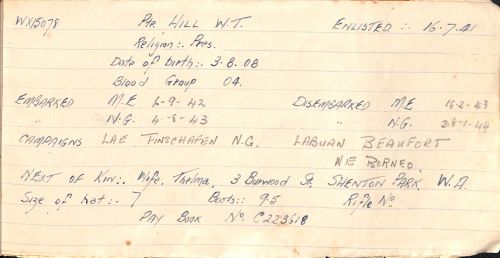 WX15078 Pte. HILL W.T. ENLISTED :- 16-7-41
Religion :- Pres.
Date of birth :- 3-8-08
Blood Group O4.
EMBARKED M.E 6-9-42 DISEMBARKED M.E 18-2-43
" N.G. 4-8-43 " N.G. 28-1-44
CAMPAIGNS LAE FINSCHAFEN N.G. LABUAN BEAUFORT
N E BORNEO.
NEXT OF KIN :- Wife, Thelma, 3 Burwood St, SHENTON PARK, W.A.
Size of hat :- 7 Boots :- 9.5 Rifle No
PAY BOOK No C223618